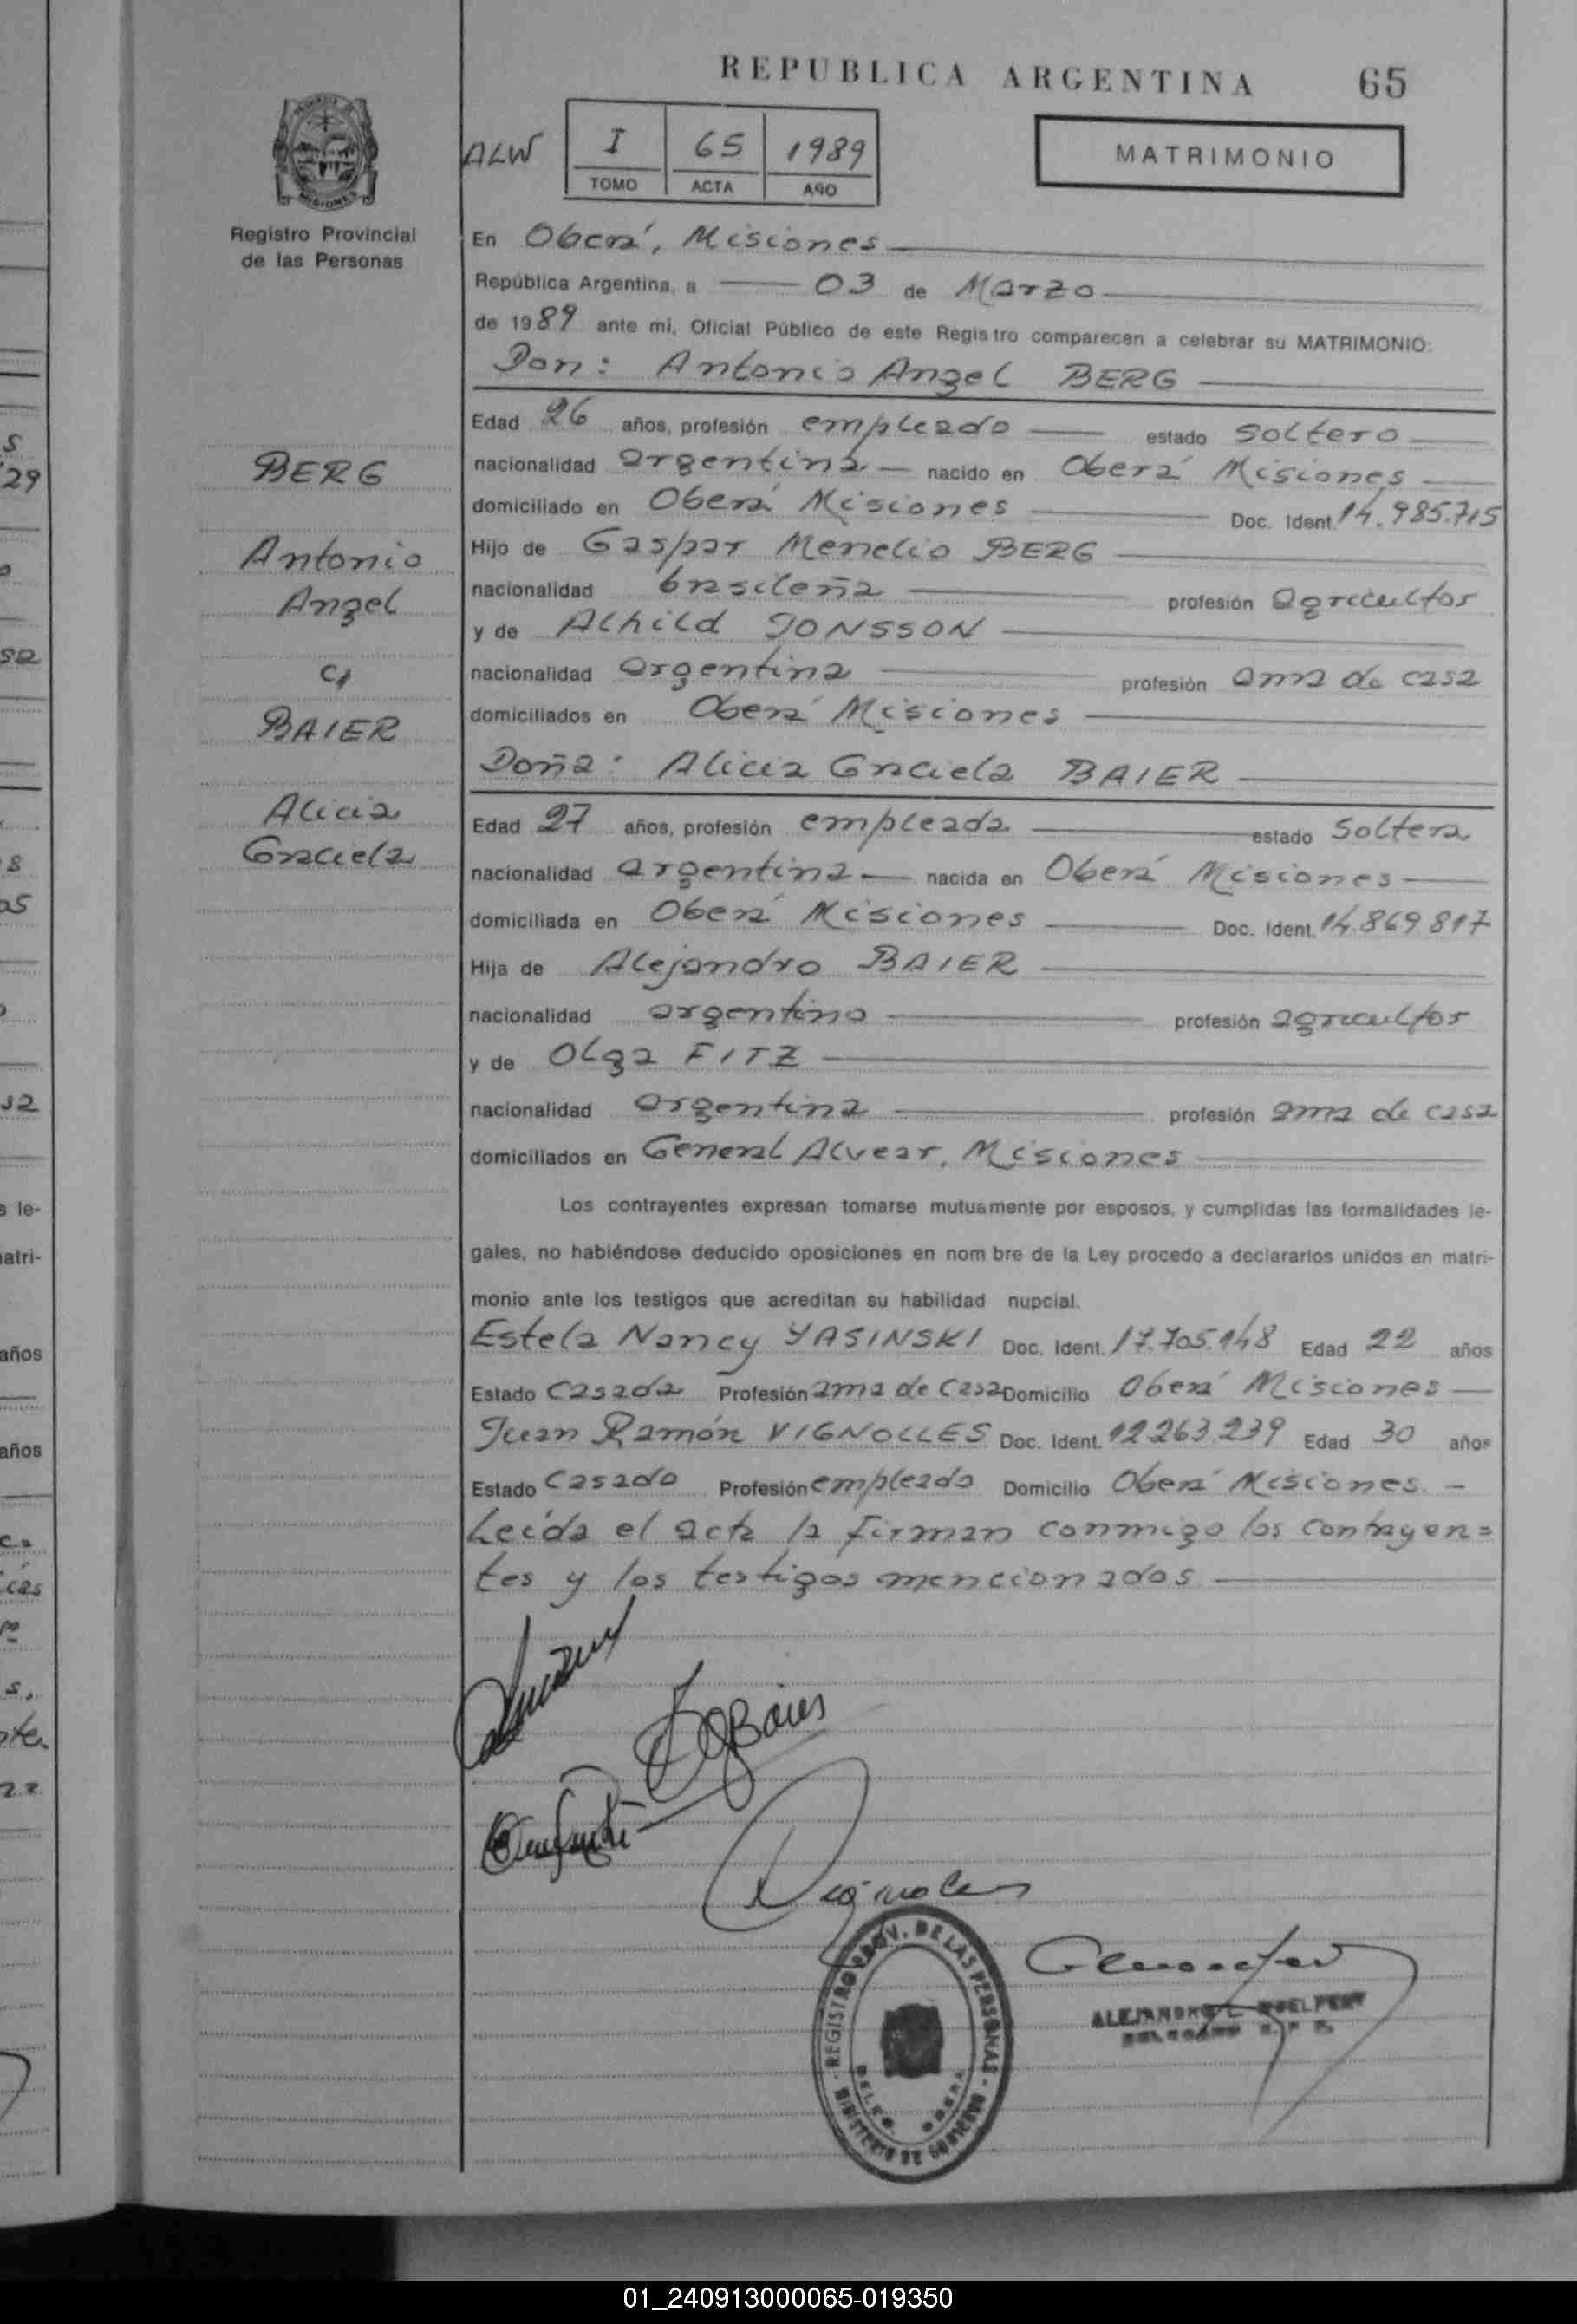 REPUBLICA ARGENTINA 65
ALW
I 65 1989
TOMO ACTA AÑO
MATRIMONIO
MISIONES
Registro Provincial
de las Personas
BERG
Antonio
Angel
c/
BAIER
Alicia
Graciela
En Oberá, Misiones
República Argentina, a 03 de Marzo
de 1989 ante mi, Oficial Público de este Registro comparecen a celebrar su MATRIMONIO:
Don: Antonio Angel BERG
Edad 26 años, profesión empleado estado soltero
nacionalidad argentina nacido en Oberá Misiones
domiciliado en Oberá Misiones Doc. Ident. 14.985.715
Hijo de Gaspar Menelio BERG
nacionalidad brasileña profesión agricultor
y de Alhild JONSSON
nacionalidad argentina profesión ama de casa
domiciliados en Oberá Misiones
Doña: Alicia Graciela BAIER
Edad 27 años, profesión empleada estado Soltera
nacionalidad argentina nacida en Oberá Misiones
domiciliada en Oberá Misiones Doc. Ident. 14.869 817
Hija de Alejandro BAIER
nacionalidad argentino profesión agricultor
y de Olga FITZ
nacionalidad argentina profesión ama de casa
domiciliados en General Alvear, Misiones
Los contrayentes expresan tomarse mutuamente por esposos, y cumplidas las formalidades le-
gales, no habiéndose deducido oposiciones en nom bre de la Ley procedo a declararlos unidos en matri-
monio ante los testigos que acreditan su habilidad nupcial.
Estela Nancy YASINSKI Doc. Ident. 17.705.148 Edad 22 años
Estado Casada Profesión ama de casa Domicilio Oberá Misiones
Juan Ramón VIGNOLLES Doc. Ident. 12.263.239 Edad 30 años
Estado Casado Profesión empleado Domicilio Oberá Misiones. -
Leída el acta la firman conmigo los contrayen=
tes y los testigos mencionados
REGISTRO PROV. DE LAS PERSONAS - MINISTERIO DE GOBIERNO -
DELEG. OBERA
ALEJANDRO L.
01_240913000065-019350